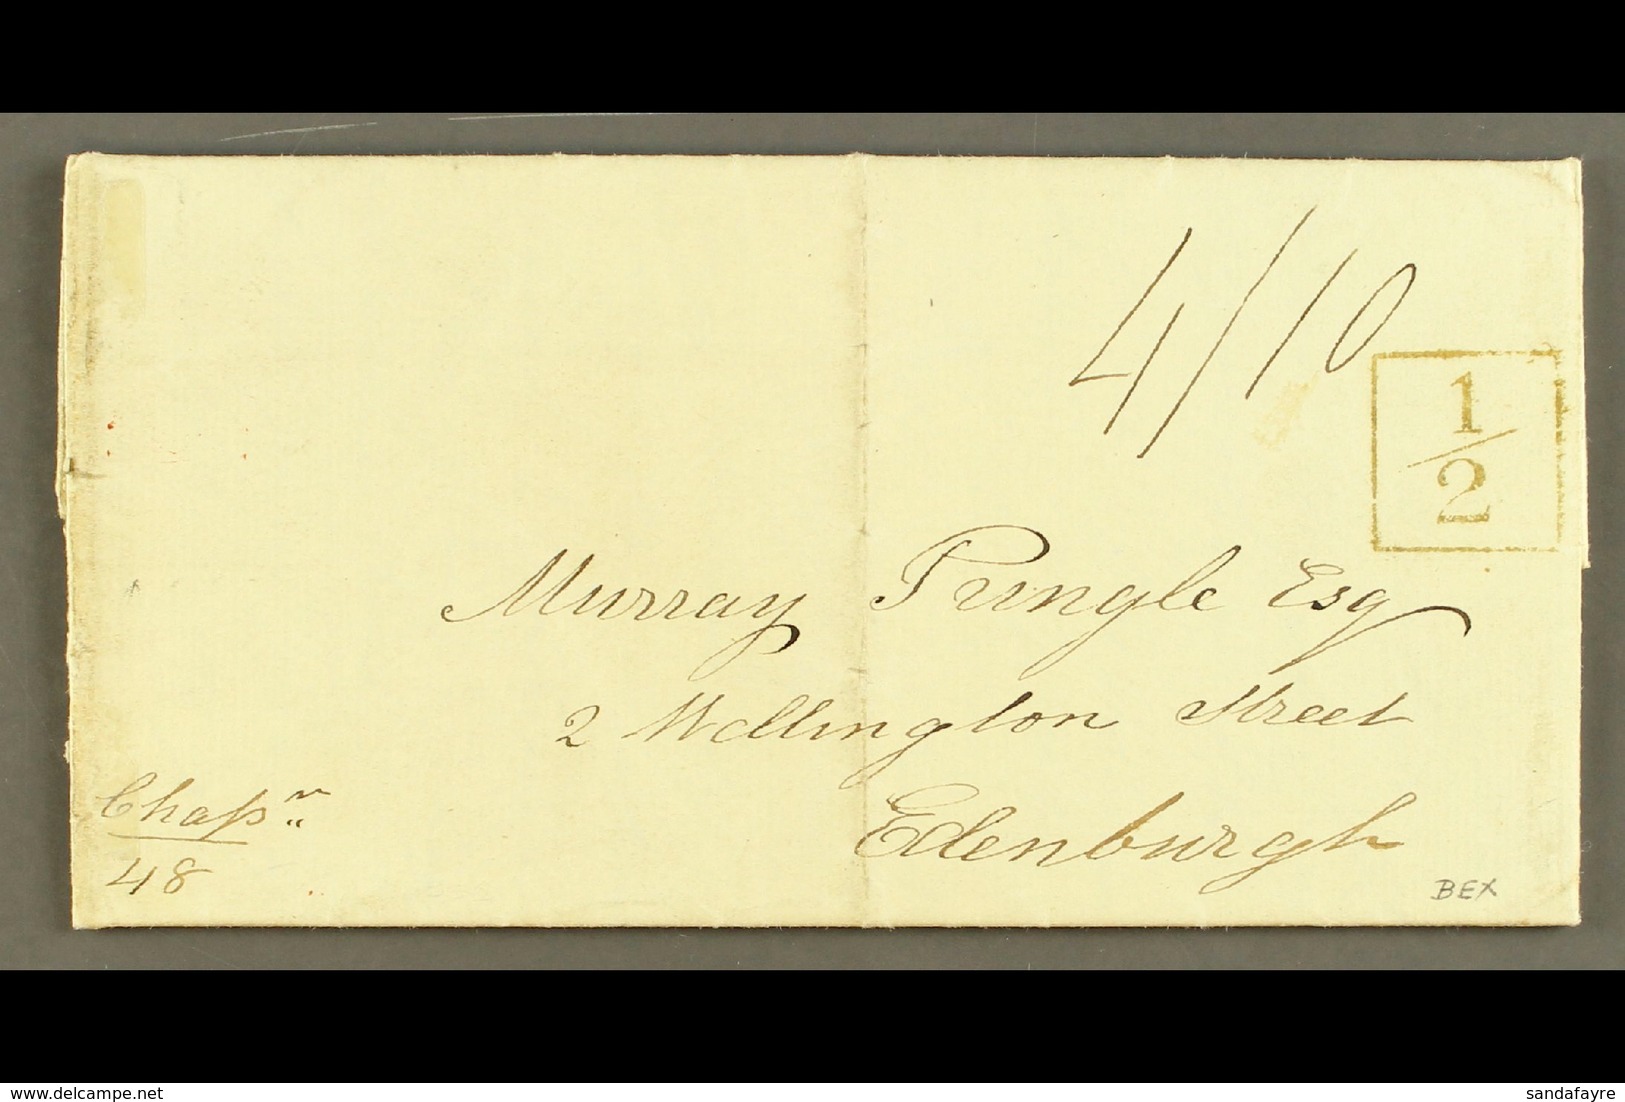 4/10
1/2
Murray Pringle Esq
2 Wellington Street
Edenburgh
48
BEX
© www.delcampe.net
sandafayre